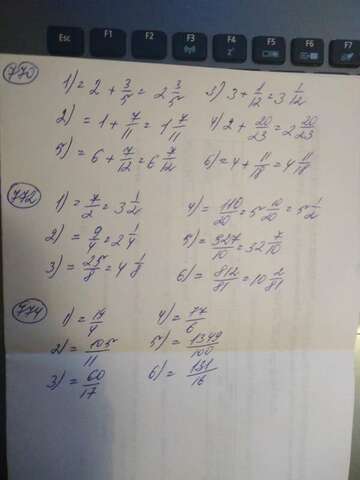 Esc F1 F2 F3 F4 F5 F6 F7
770
1) = 2 + 3/5 = 2 3/5 3) 3 + 1/12 = 3 1/12
2) = 1 + 7/11 = 1 7/11 4) 2 + 20/23 = 2 20/23
5) = 6 + 7/12 = 6 7/12 6) = 4 + 11/18 = 4 11/18
772
1) = 7/2 = 3 1/2 4) = 110/20 = 5 10/20 = 5 1/2
2) = 9/4 = 2 1/4 5) = 327/10 = 32 7/10
3) = 25/8 = 4 1/8 6) = 812/81 = 10 2/81
774
1) = 19/4 4) = 77/6
2) = 105/11 5) = 1349/100
3) = 60/17 6) = 131/16